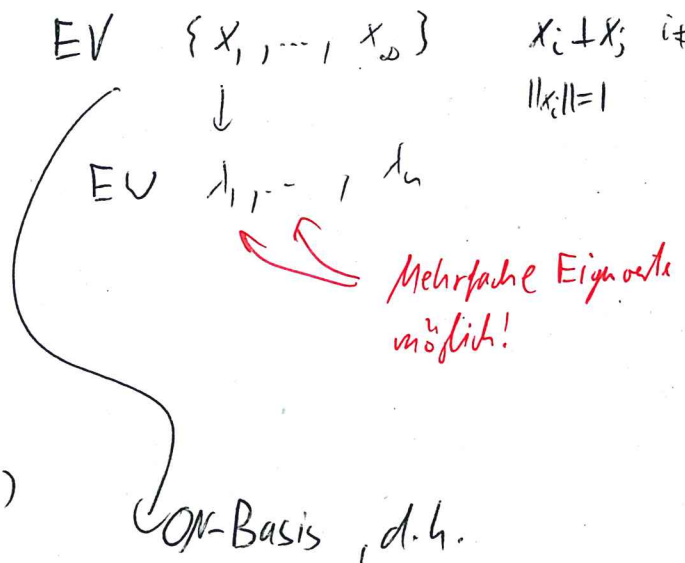 EV {x₁, ..., x∞} xᵢ ⊥ xⱼ i≠
||xᵢ||=1
EW λ₁, ..., λₙ
Mehrfache Eigenwerte
möglich!
)
ON-Basis, d.h.